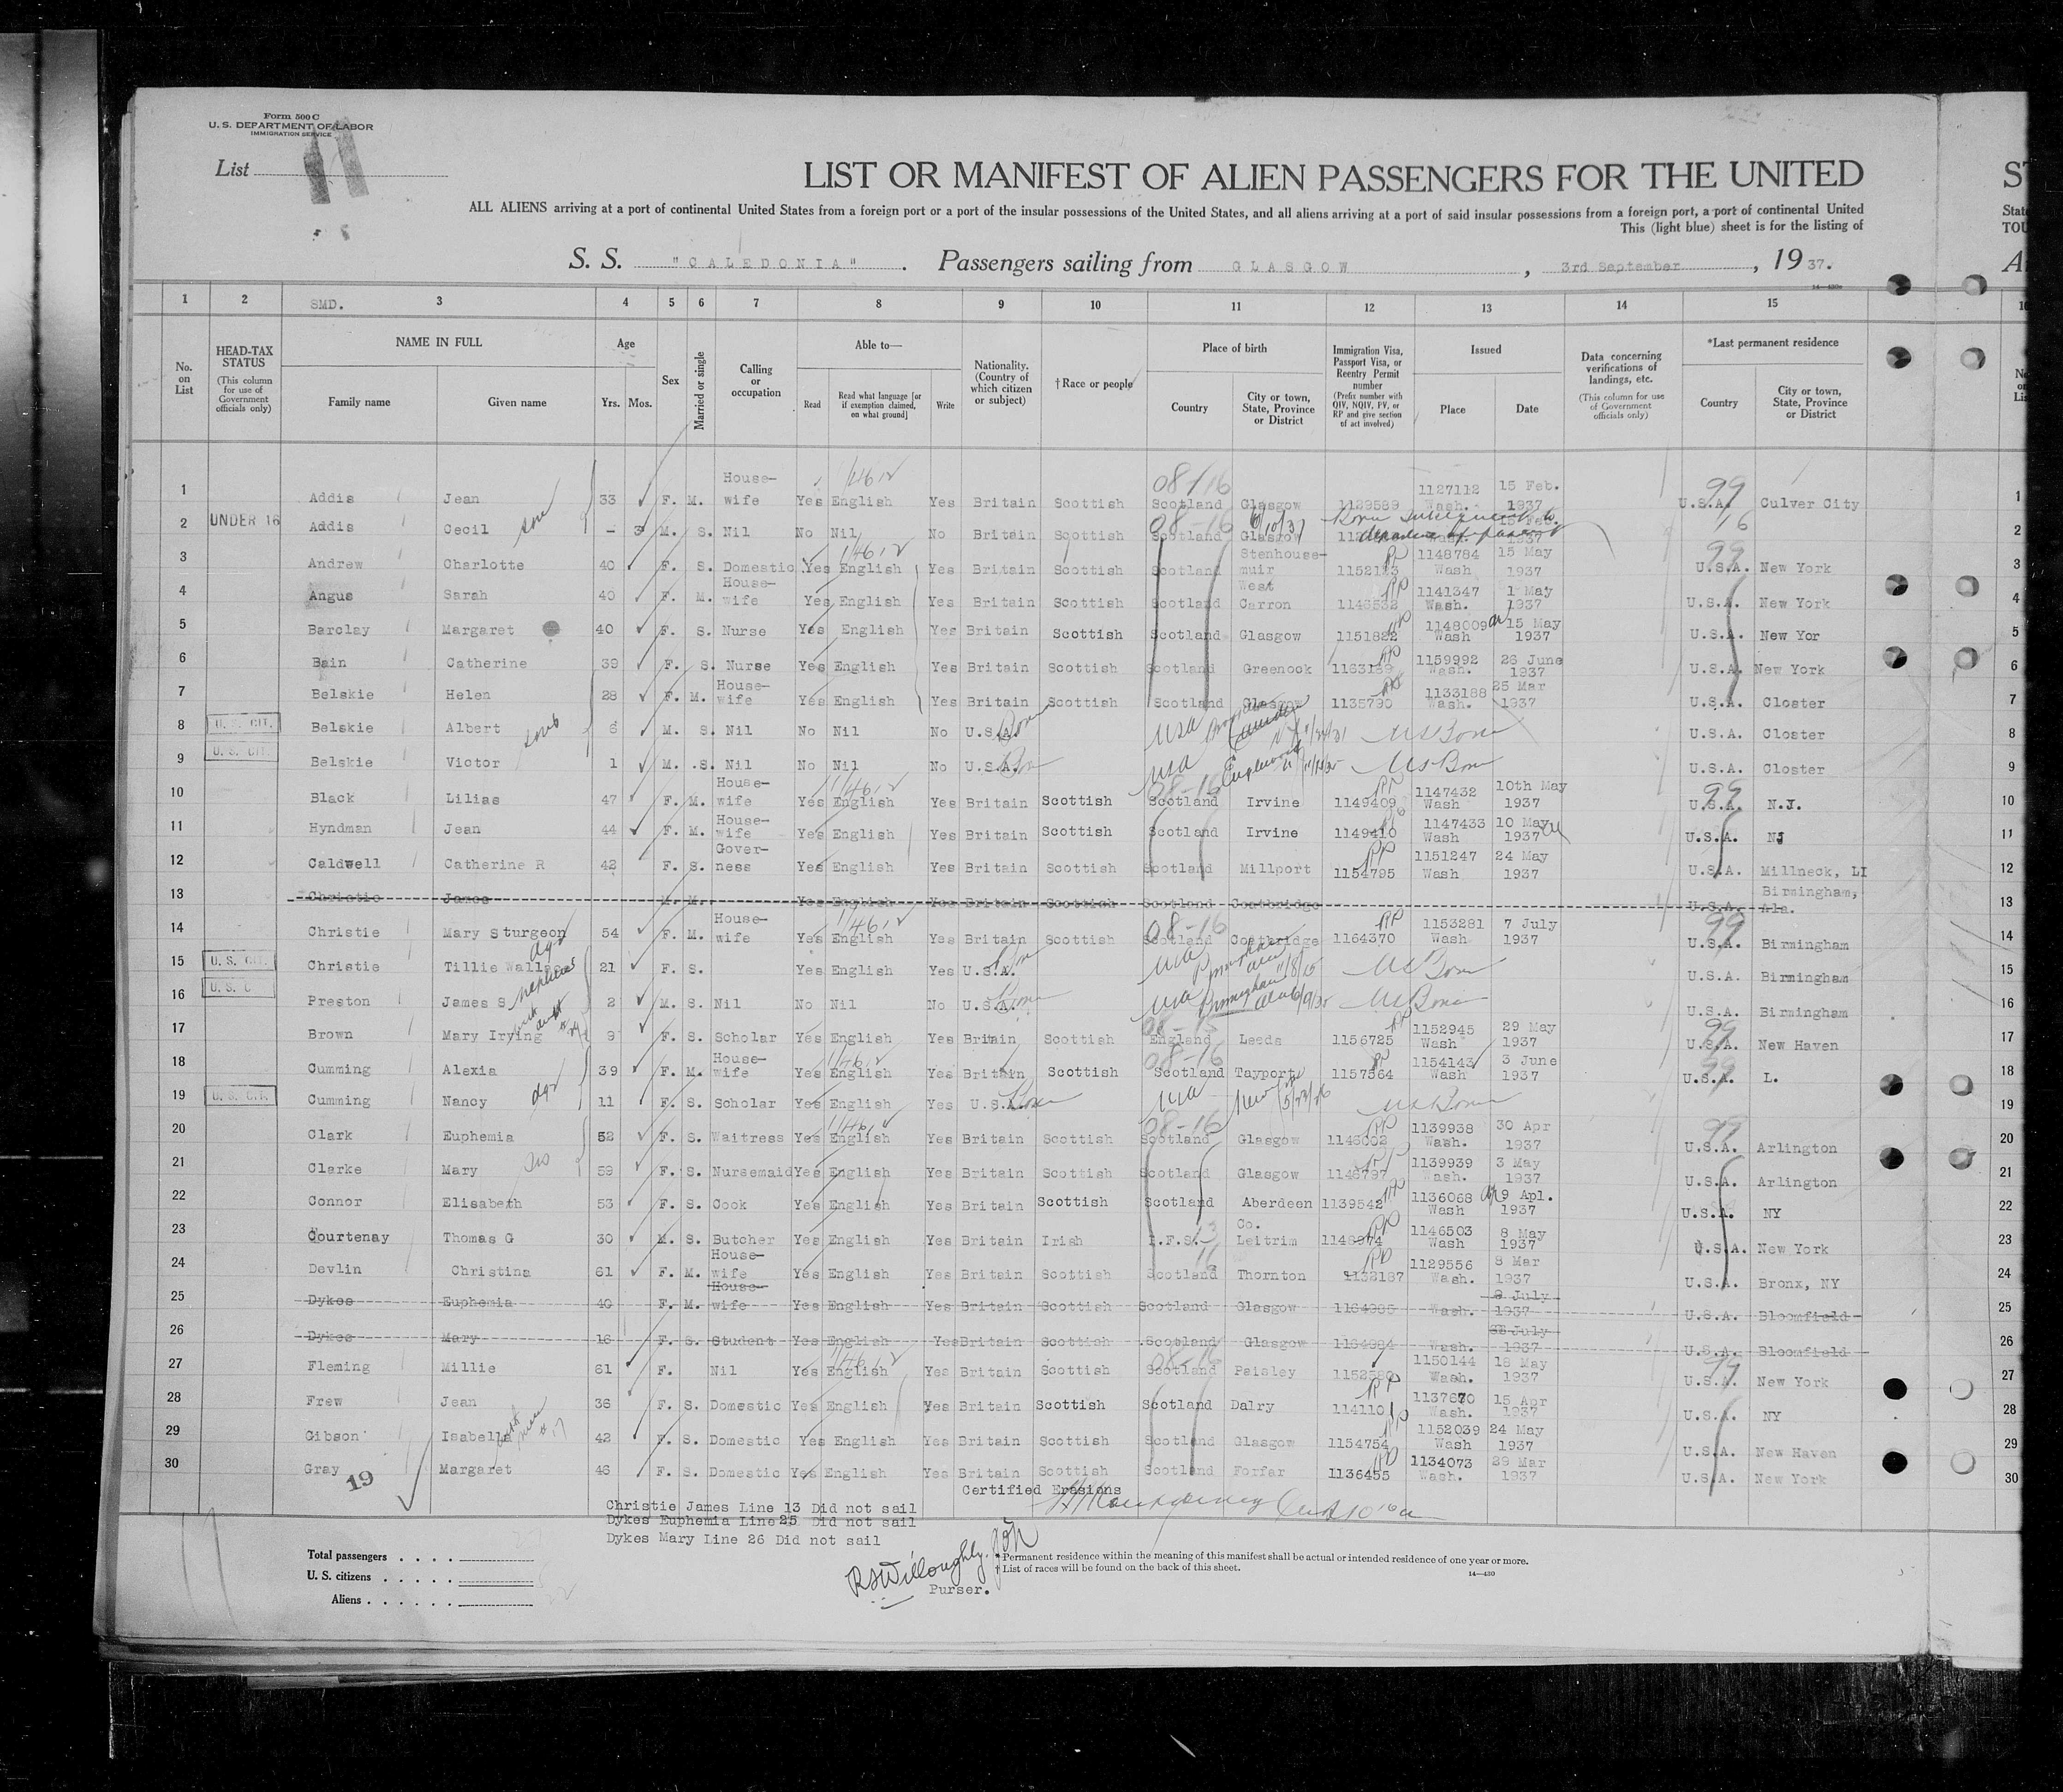 Form 500 C
U. S. DEPARTMENT OF LABOR
IMMIGRATION SERVICE
List 11
LIST OR MANIFEST OF ALIEN PASSENGERS FOR THE UNITED
ALL ALIENS arriving at a port of continental United States from a foreign port or a port of the insular possessions of the United States, and all aliens arriving at a port of said insular possessions from a foreign port, a port of continental United
This (light blue) sheet is for the listing of
S. S. "CALEDONIA" . Passengers sailing from GLASGOW , 3rd September , 19 37.
1 2 SMD. 3 4 5 6 7 8 9 10 11 12 13 14 15
No. on List
HEAD-TAX STATUS (This column for use of Government officials only)
NAME IN FULL Family name Given name
Age Yrs. Mos.
Sex
Married or single
Calling or occupation
Able to— Read Read what language [or if exemption claimed, on what ground] Write
Nationality. (Country of which citizen or subject)
†Race or people
Place of birth Country City or town, State, Province or District
Immigration Visa, Passport Visa, or Reentry Permit number (Prefix number with QIV, NQIV, PV, or RP and give section of act involved)
Issued Place Date
Data concerning verifications of landings, etc. (This column for use of Government officials only)
*Last permanent residence Country City or town, State, Province or District
1 Addis Jean 33 F. M. House-wife Yes English Yes Britain Scottish Scotland Glasgow 1129589 1127112 Wash. 15 Feb. 1937 U.S.A. Culver City 1
2 UNDER 16 Addis Cecil son – 3 M. S. Nil No Nil No Britain Scottish Scotland Glasgow 15 Feb. 1937 2
3 Andrew Charlotte 40 F. S. Domestic Yes English Yes Britain Scottish Scotland Stenhouse-muir 1148784 Wash 15 May 1937 U.S.A. New York 3
4 Angus Sarah 40 F. M. House-wife Yes English Yes Britain Scottish Scotland West Carron 1146532 1141347 Wash. 1 May 1937 U.S.A. New York 4
5 Barclay Margaret 40 F. S. Nurse Yes English Yes Britain Scottish Scotland Glasgow 1151822 1148009 Wash 15 May 1937 U.S.A. New Yor 5
6 Bain Catherine 39 F. S. Nurse Yes English Yes Britain Scottish Scotland Greenock 1163189 1159992 Wash. 26 June 1937 U.S.A. New York 6
7 Belskie Helen 28 F. M. House-wife Yes English Yes Britain Scottish Scotland Glasgow 1135790 1133188 Wash. 25 Mar 1937 U.S.A. Closter 7
8 U. S. CIT. Belskie Albert sons 6 M. S. Nil No Nil No U.S.A. Born USA US Born U.S.A. Closter 8
9 U. S. CIT. Belskie Victor 1 M. S. Nil No Nil No U.S.A. Born USA Englewood US Born U.S.A. Closter 9
10 Black Lilias 47 F. M. House-wife Yes English Yes Britain Scottish Scotland Irvine 1149409 1147432 Wash 10th May 1937 U.S.A. N.J. 10
11 Hyndman Jean 44 F. M. House-wife Yes English Yes Britain Scottish Scotland Irvine 1149410 1147433 Wash 10 May 1937 U.S.A. NJ 11
12 Caldwell Catherine R 42 F. S. Gover-ness Yes English Yes Britain Scottish Scotland Millport 1154795 1151247 Wash 24 May 1937 U.S.A. Millneck, LI 12
13 Christie James M. M. Yes English Yes Britain Scottish Scotland Coatbridge U.S.A. Birmingham, Ala. 13
14 Christie Mary Sturgeon 54 F. M. House-wife Yes English Yes Britain Scottish Scotland Coatbridge 1164370 1153281 Wash 7 July 1937 U.S.A. Birmingham 14
15 U. S. CIT. Christie Tillie Wallace dgr 21 F. S. Yes English Yes U.S.A. Born USA Birmingham US Born U.S.A. Birmingham 15
16 U. S. C Preston James S nephew 2 M. S. Nil No Nil No U.S.A. Born USA Birmingham US Born U.S.A. Birmingham 16
17 Brown Mary Irving 9 F. S. Scholar Yes English Yes Britain Scottish England Leeds 1156725 1152945 Wash 29 May 1937 U.S.A. New Haven 17
18 Cumming Alexia 39 F. M. House-wife Yes English Yes Britain Scottish Scotland Tayport 1157564 1154143 Wash 3 June 1937 U.S.A. L. 18
19 U. S. CIT. Cumming Nancy dgr 11 F. S. Scholar Yes English Yes U.S.A. Born USA US Born 19
20 Clark Euphemia 52 F. S. Waitress Yes English Yes Britain Scottish Scotland Glasgow 1146002 1139938 Wash. 30 Apr 1937 U.S.A. Arlington 20
21 Clarke Mary sis 59 F. S. Nursemaid Yes English Yes Britain Scottish Scotland Glasgow 1146797 1139939 Wash. 3 May 1937 U.S.A. Arlington 21
22 Connor Elisabeth 53 F. S. Cook Yes English Yes Britain Scottish Scotland Aberdeen 1139542 1136068 Wash 9 Apl. 1937 U.S.A. NY 22
23 Courtenay Thomas G 30 M. S. Butcher Yes English Yes Britain Irish I.F.S. Co. Leitrim 1148974 1146503 Wash 8 May 1937 U.S.A. New York 23
24 Devlin Christina 61 F. M. House-wife Yes English Yes Britain Scottish Scotland Thornton 1132187 1129556 Wash. 8 Mar 1937 U.S.A. Bronx, NY 24
25 Dykes Euphemia 40 F. M. House-wife Yes English Yes Britain Scottish Scotland Glasgow 1164985 Wash. 9 July 1937 U.S.A. Bloomfield 25
26 Dykes Mary 16 F. S. Student Yes English Yes Britain Scottish Scotland Glasgow 1164984 Wash. July 1937 U.S.A. Bloomfield 26
27 Fleming Millie 61 F. Nil Yes English Yes Britain Scottish Scotland Paisley 1152580 1150144 Wash. 18 May 1937 U.S.A. New York 27
28 Frew Jean 36 F. S. Domestic Yes English Yes Britain Scottish Scotland Dalry 1141101 1137670 Wash. 15 Apr 1937 U.S.A. NY 28
29 Gibson Isabella 42 F. S. Domestic Yes English Yes Britain Scottish Scotland Glasgow 1154754 1152039 Wash 24 May 1937 U.S.A. New Haven 29
30 Gray Margaret 46 F. S. Domestic Yes English Yes Britain Scottish Scotland Forfar 1136455 1134073 Wash. 29 Mar 1937 U.S.A. New York 30
19
Certified Erasions
Christie James Line 13 Did not sail
Dykes Euphemia Line 25 Did not sail
Dykes Mary Line 26 Did not sail
Total passengers . . . .
U. S. citizens . . . . .
Aliens . . . . . .
RS Willoughly.
Purser.
* Permanent residence within the meaning of this manifest shall be actual or intended residence of one year or more.
† List of races will be found on the back of this sheet.
14—430